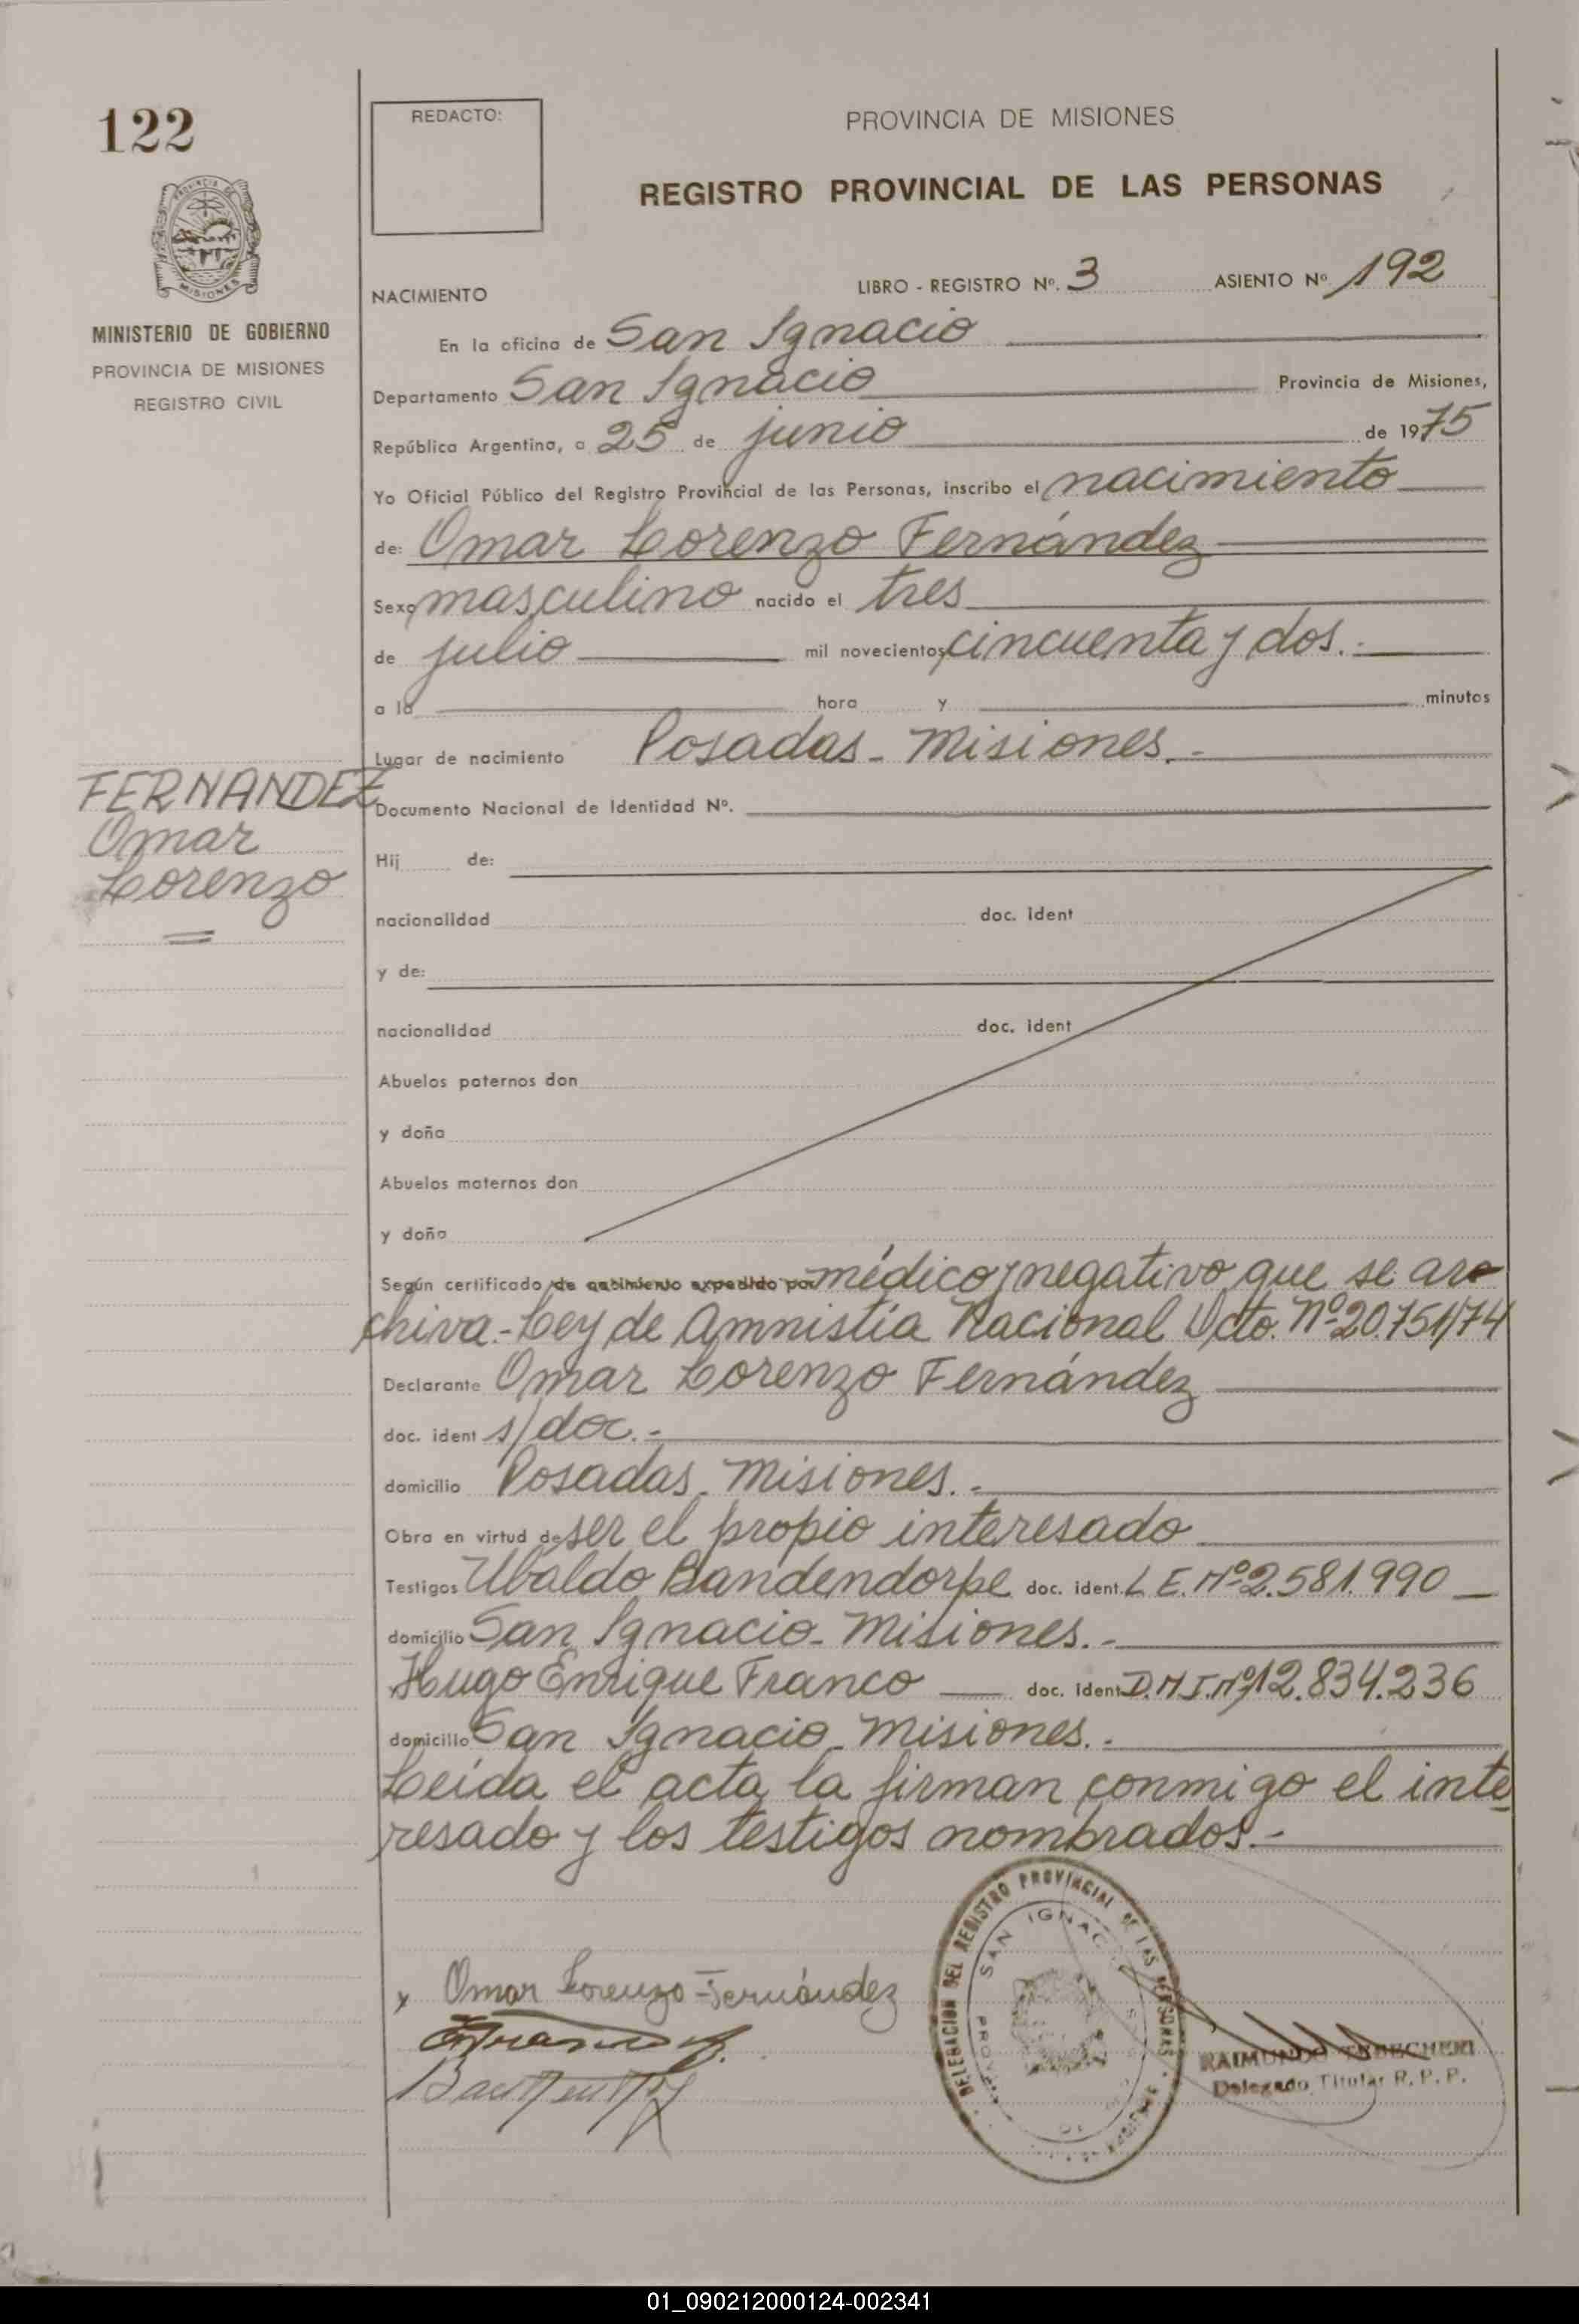 122
REDACTO:
PROVINCIA DE MISIONES
REGISTRO PROVINCIAL DE LAS PERSONAS
MINISTERIO DE GOBIERNO
PROVINCIA DE MISIONES
REGISTRO CIVIL
NACIMIENTO LIBRO - REGISTRO Nº. 3 ASIENTO Nº 192
En la oficina de San Ignacio
Departamento San Ignacio Provincia de Misiones,
República Argentina, a 25 de junio de 1975
Yo Oficial Público del Registro Provincial de las Personas, inscribo el nacimiento
de: Omar Lorenzo Fernández
Sexo masculino nacido el tres
de julio mil novecientos cincuenta y dos.-
a la hora y minutos
Lugar de nacimiento Posadas - Misiones.-
FERNANDEZ
Omar
Lorenzo
Documento Nacional de Identidad Nº.
Hij de:
nacionalidad doc. ident
y de:
nacionalidad doc. ident
Abuelos paternos don
y doña
Abuelos maternos don
y doña
Según certificado de nacimiento expedido por médico y negativo que se ar-
chiva.- Ley de Amnistía Nacional Dcto. Nº 20.751/74
Declarante Omar Lorenzo Fernández
doc. ident s/doc.-
domicilio Posadas - Misiones.-
Obra en virtud de ser el propio interesado
Testigos Ubaldo Bandendorpe doc. ident. L.E. Nº 2.581.990
domicilio San Ignacio - Misiones.-
Hugo Enrique Franco doc. ident D.N.I. Nº 12.834.236
domicilio San Ignacio - Misiones.-
Leída el acta la firman conmigo el inte
resado y los testigos nombrados.-
x Omar Lorenzo Fernández
DELEGACION DEL REGISTRO PROVINCIAL DE LAS PERSONAS
SAN IGNACIO
RAIMUNDO
Delegado Titular R. P. P.
01_090212000124-002341